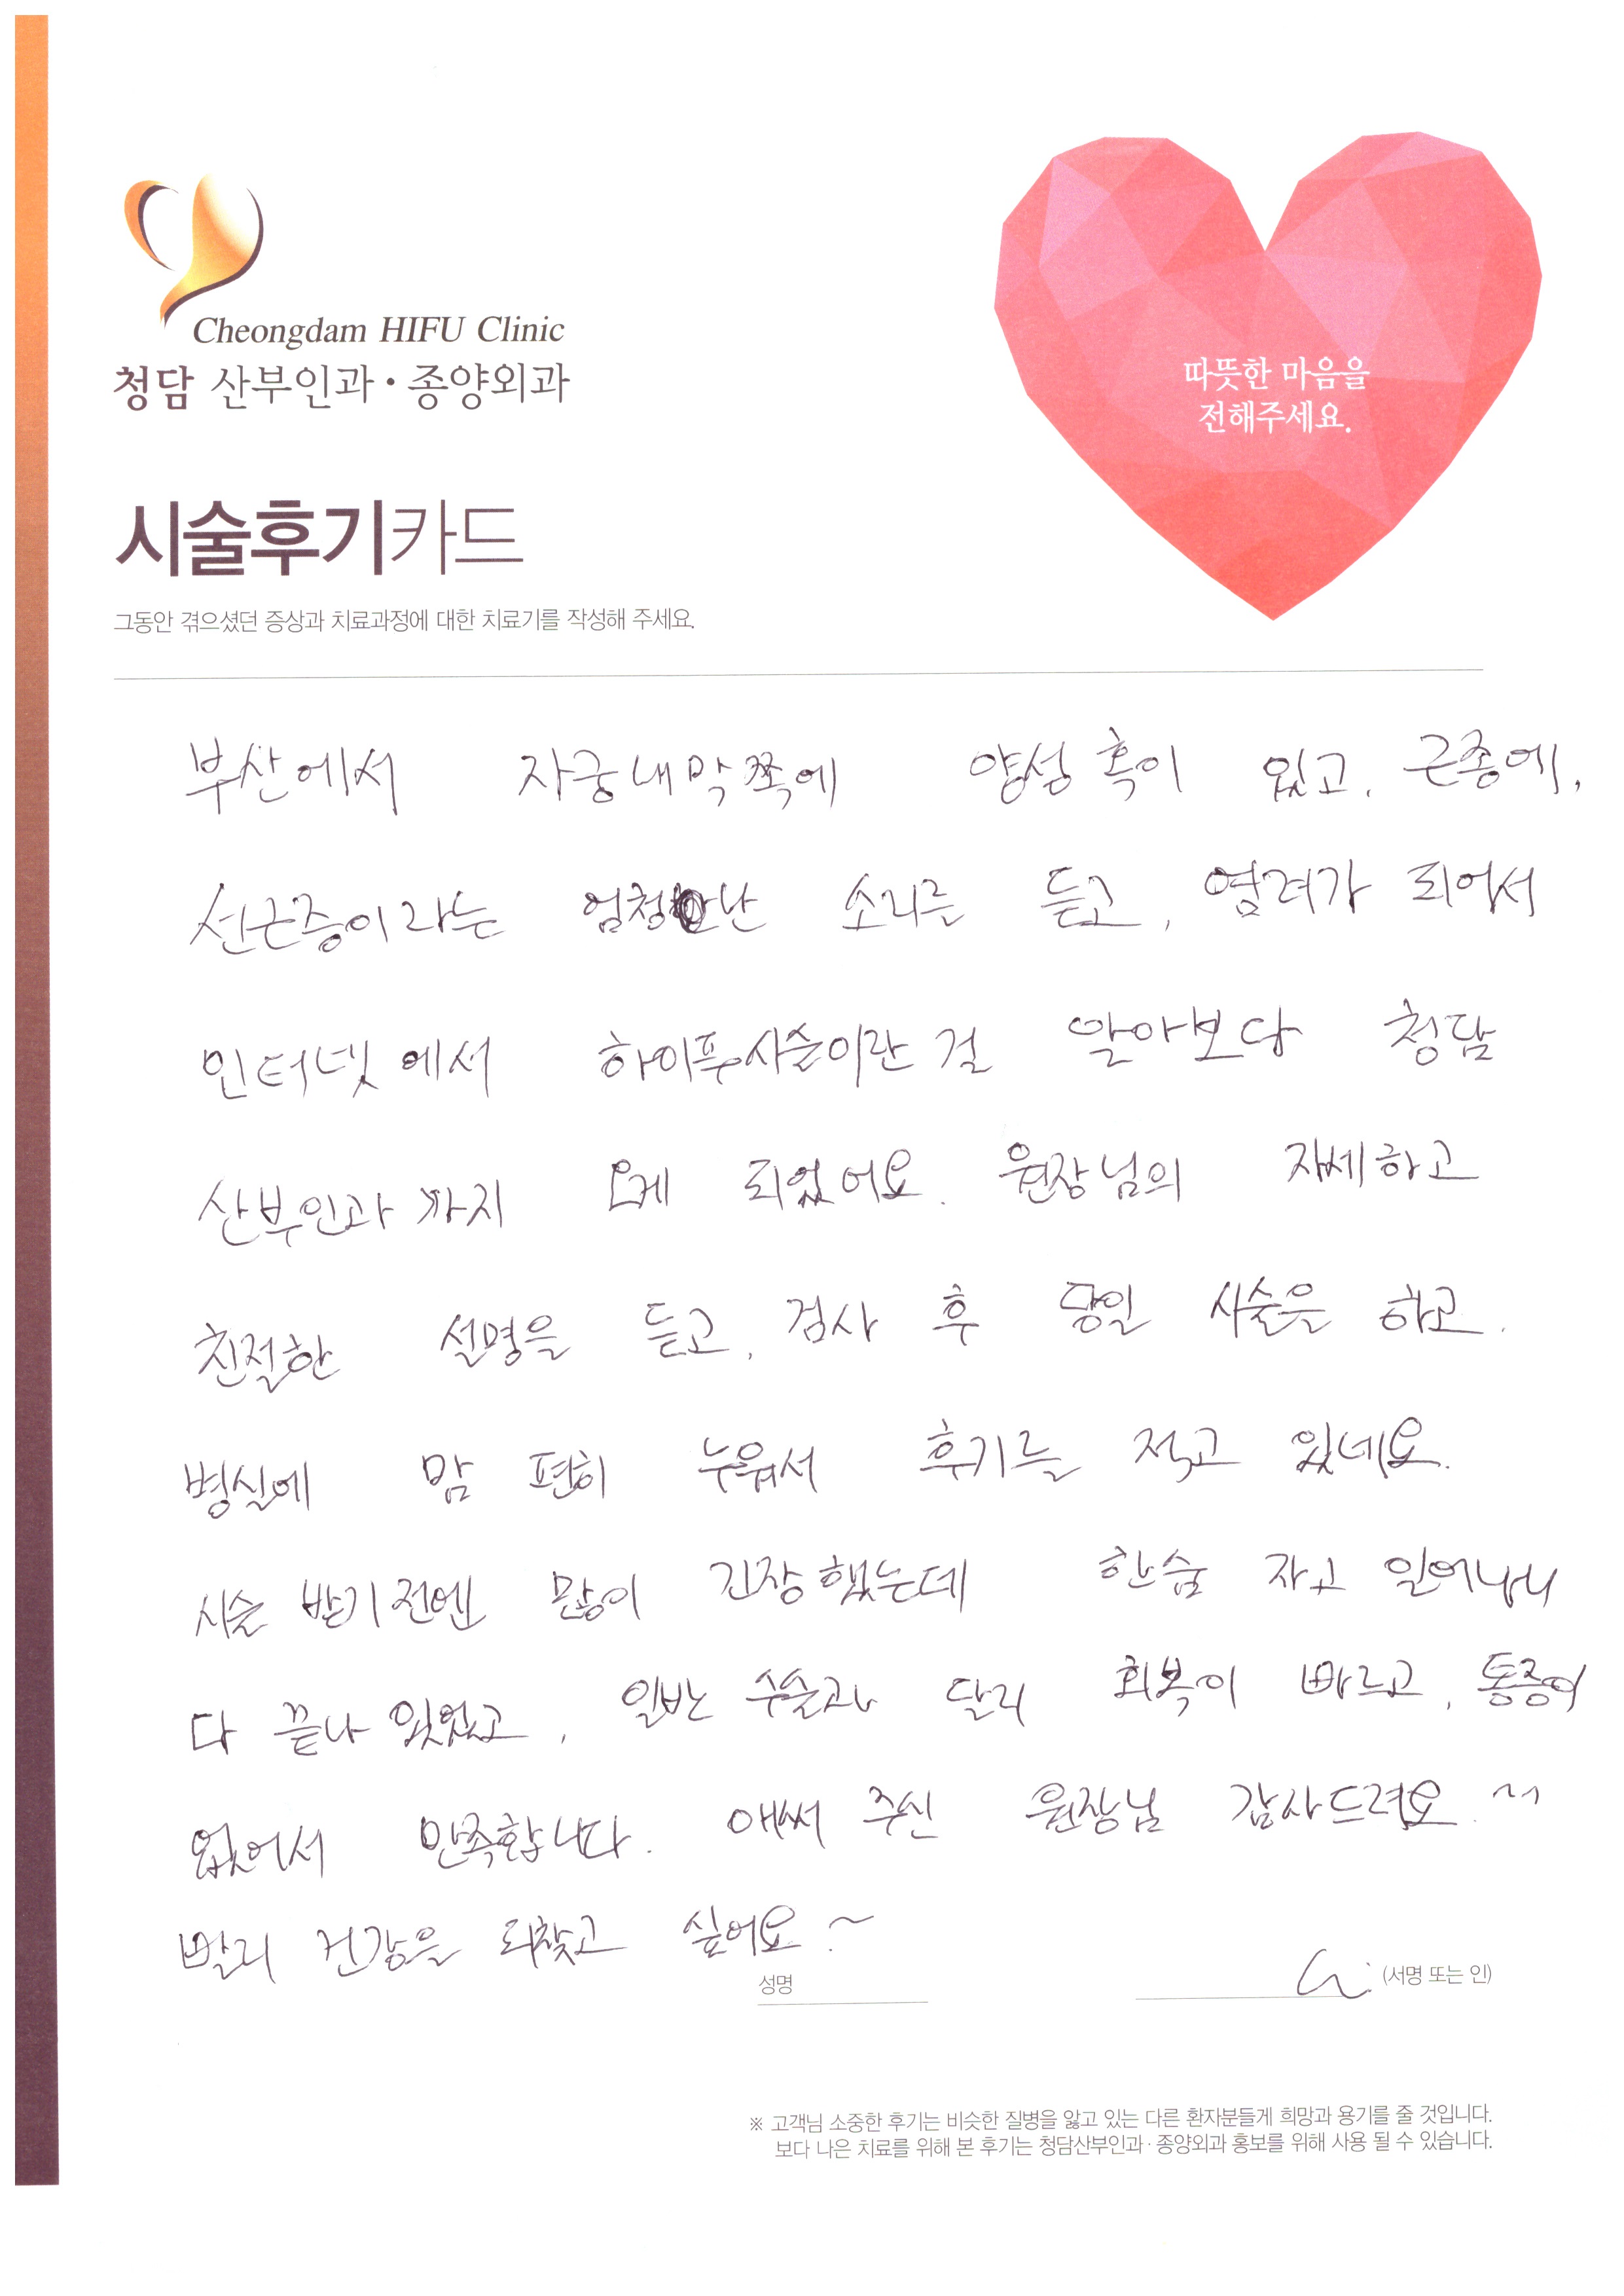 Cheongdam HIFU Clinic
청담 산부인과·종양외과
따뜻한 마음을
전해주세요.
시술후기카드
그동안 겪으셨던 증상과 치료과정에 대한 치료기를 작성해 주세요.
부산에서 자궁내막쪽에 양성 혹이 있고, 근종에,
선근증이라는 엄청난 소리를 듣고, 염려가 되어서
인터넷에서 하이푸시술이란 걸 알아보다 청담
산부인과까지 오게 되었어요. 원장님의 자세하고
친절한 설명을 듣고, 검사 후 당일 시술을 하고.
병실에 맘 편히 누워서 후기를 적고 있네요.
시술 받기 전엔 많이 긴장했는데 한숨 자고 일어나니
다 끝나 있었고, 일반 수술과 달리 회복이 빠르고, 통증이
없어서 만족합니다. 애써 주신 원장님 감사드려요.~
빨리 건강을 되찾고 싶어요~
성명 (서명 또는 인)
※ 고객님 소중한 후기는 비슷한 질병을 앓고 있는 다른 환자분들게 희망과 용기를 줄 것입니다.
보다 나은 치료를 위해 본 후기는 청담산부인과·종양외과 홍보를 위해 사용 될 수 있습니다.